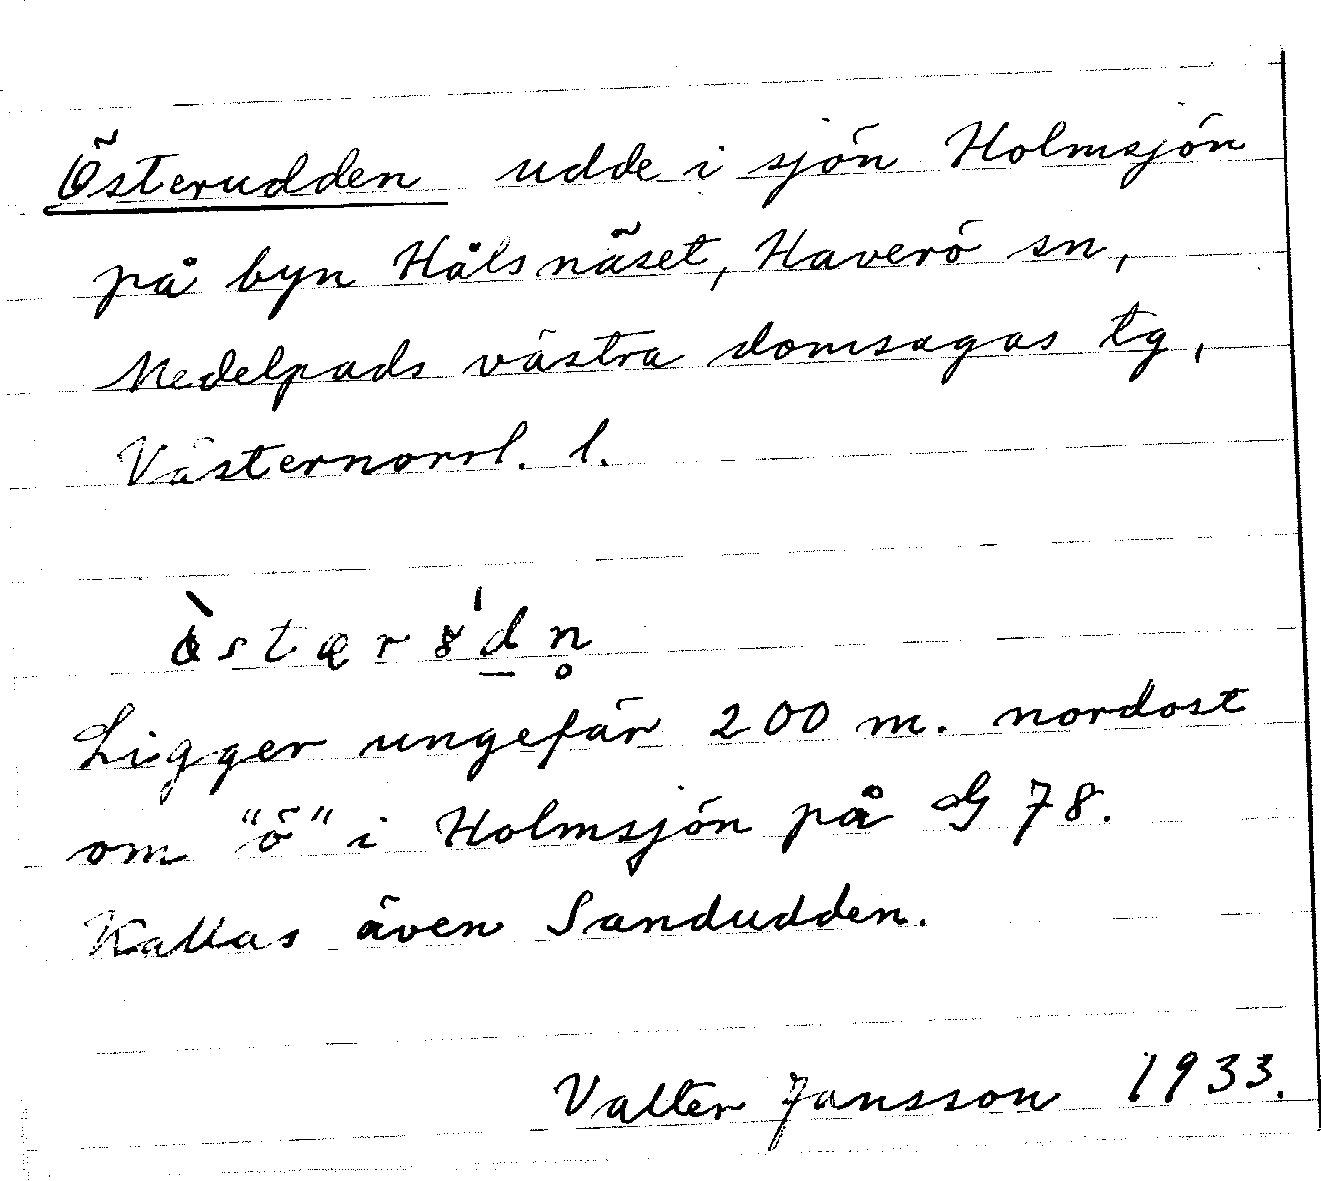 Österudden udde i sjön Holmsjön
på byn Hålsnäset, Haverö sn,
Medelpads västra domsagas tg,
Västernorrl. l.
Ligger ungefär 200 m. nordost
om "ö" i Holmsjön på G 78.
Kallas även Sandudden.
Valter Jansson 1933.